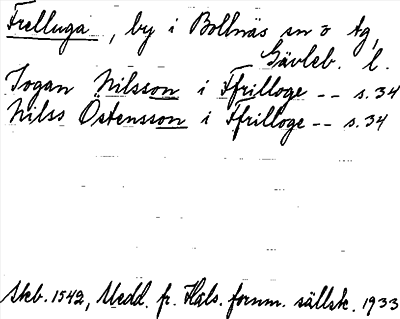 Frelluga, by i Bollnäs sn o tg,
Gävleb. l.
Jogan Nilsson i Ffrilloge -- s. 34
Nilss Östensson i Ffrilloge -- s. 34
Skb. 1542, Medd. fr. Häls. fornm. sällsk. 1933